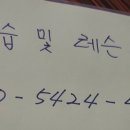 습 및 레슨
0-5424-4